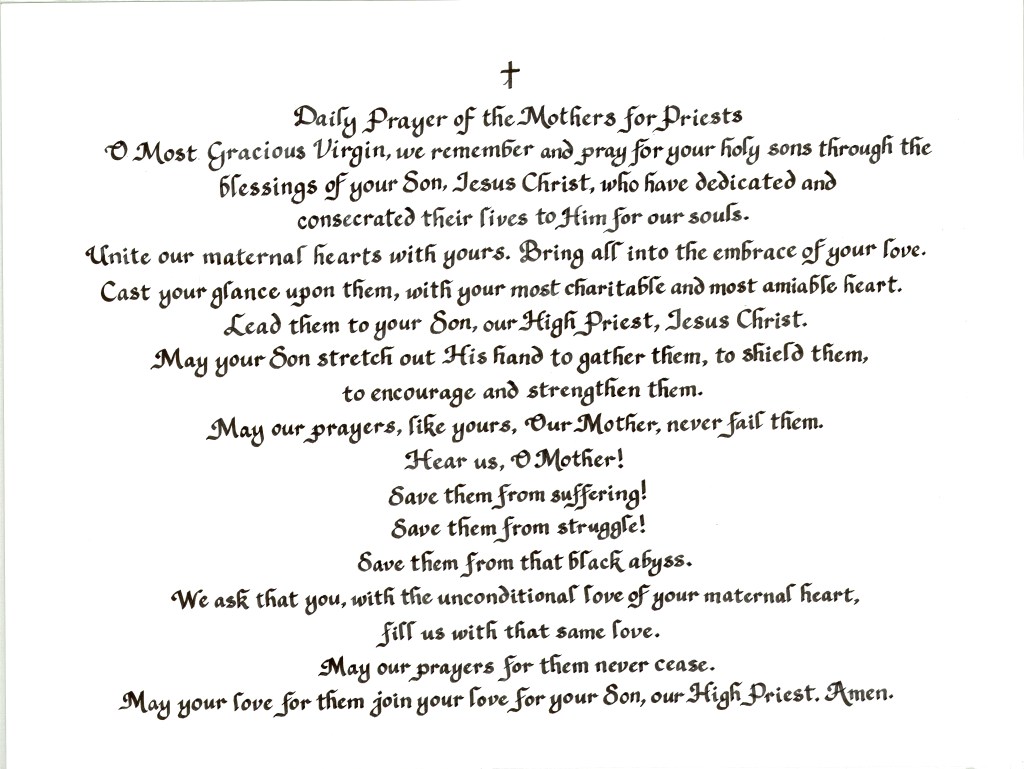 Daily Prayer of the Mothers for Priests
O Most Gracious Virgin, we remember and pray for your holy sons through the
blessings of your Son, Jesus Christ, who have dedicated and
consecrated their lives to Him for our souls.
Unite our maternal hearts with yours. Bring all into the embrace of your love.
Cast your glance upon them, with your most charitable and most amiable heart.
Lead them to your Son, our High Priest, Jesus Christ.
May your Son stretch out His hand to gather them, to shield them,
to encourage and strengthen them.
May our prayers, like yours, Our Mother, never fail them.
Hear us, O Mother!
Save them from suffering!
Save them from struggle!
Save them from that black abyss.
We ask that you, with the unconditional love of your maternal heart,
fill us with that same love.
May our prayers for them never cease.
May your love for them join your love for your Son, our High Priest. Amen.